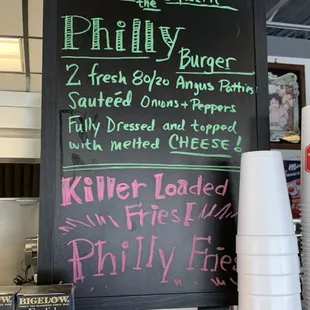 the
Philly
Burger
2 fresh 80/20 Angus Patties
Sautéed Onions + Peppers
Fully Dressed and topped
with melted CHEESE!
Killer Loaded
Fries!
Philly Fries
BIGELOW